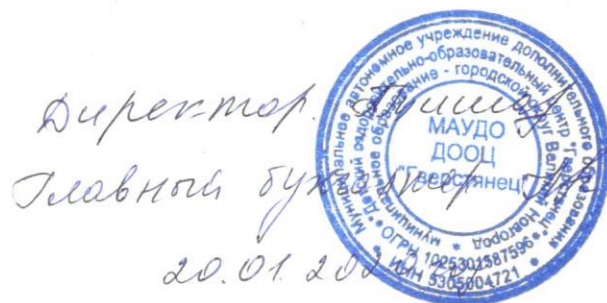 Директор
Главный бухгалтер
20.01.202
Муниципальное автономное учреждение дополнительного образования
"Детский оздоровительно-образовательный центр "Гверстянец"
муниципальное образование - городской округ Великий Новгород
ОГРН 1025301587596
ИНН 5305004721
МАУДО
ДООЦ
"Гверстянец"